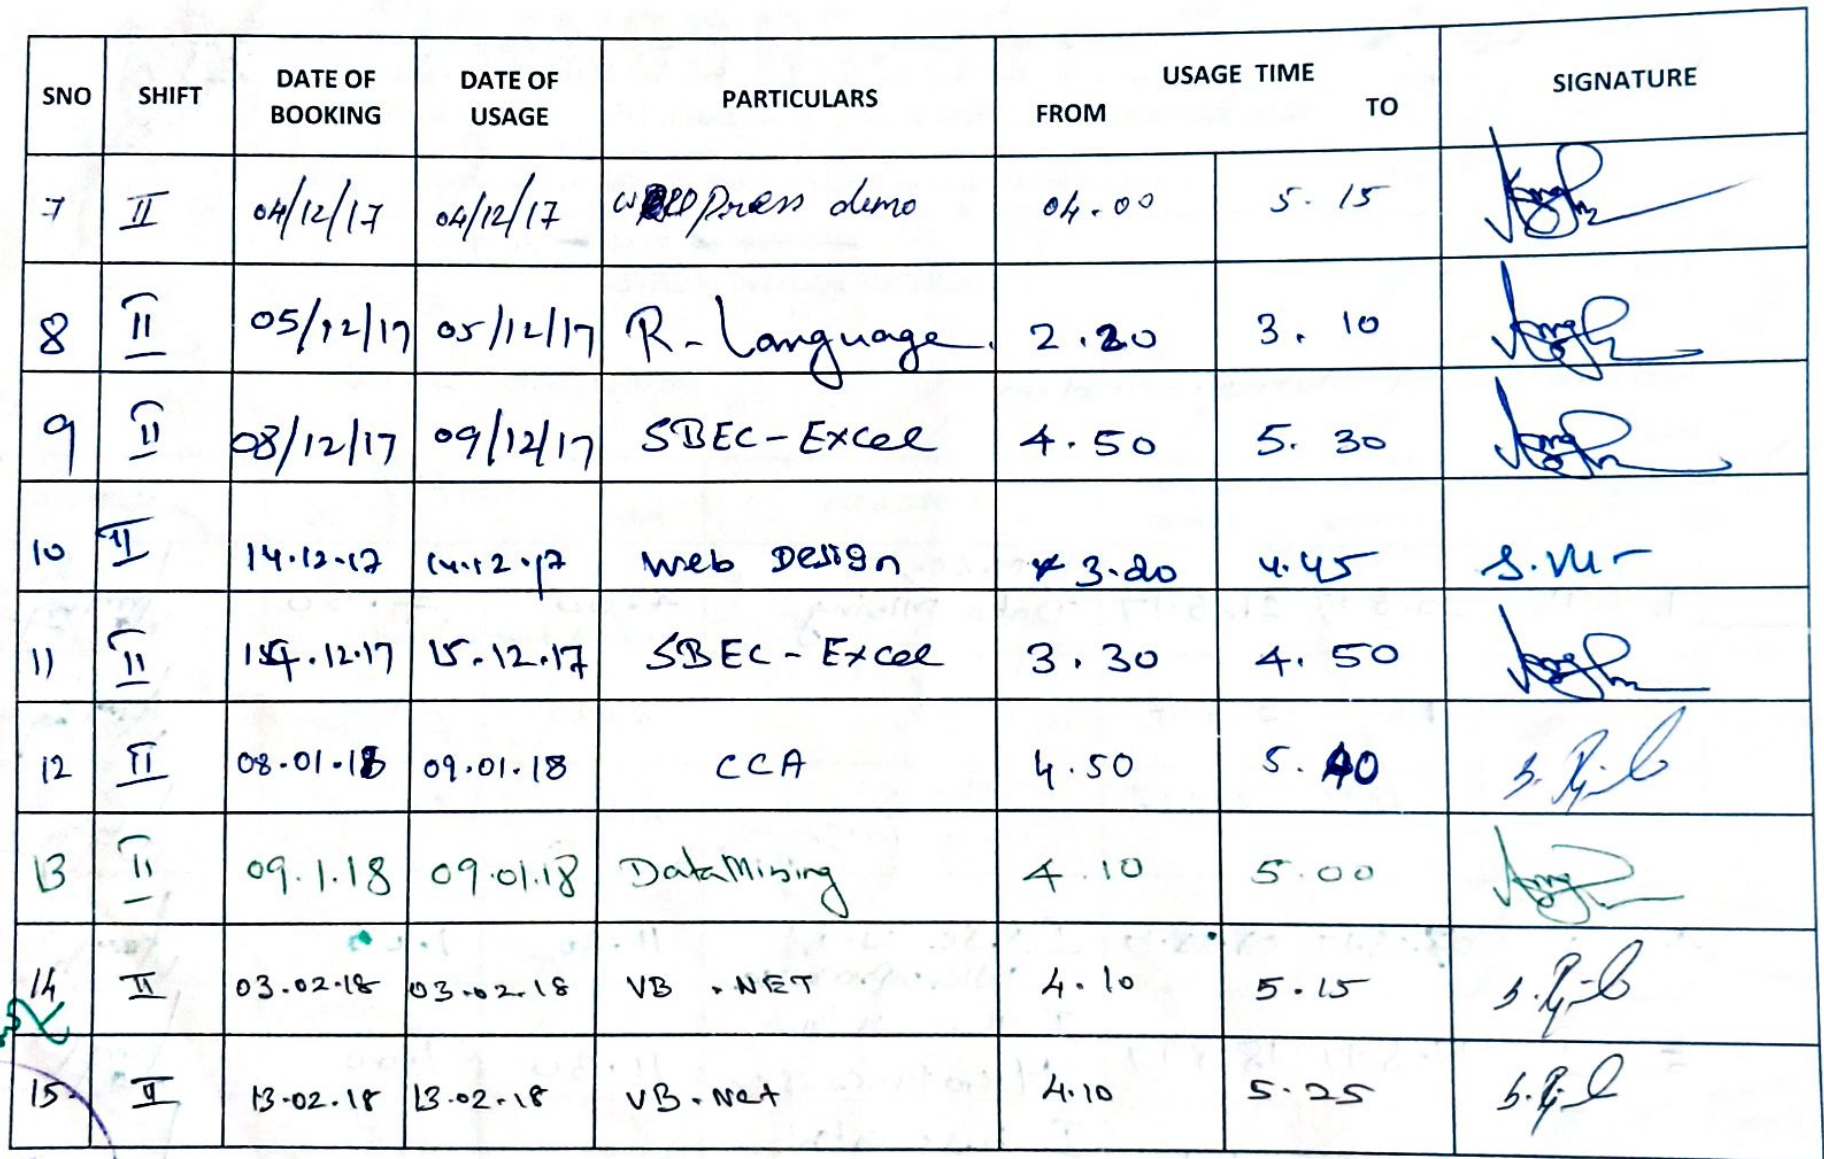 SNO SHIFT DATE OF BOOKING DATE OF USAGE PARTICULARS USAGE TIME FROM TO SIGNATURE
7 II 04/12/17 04/12/17 press demo 04.00 5.15
8 II 05/12/17 05/12/17 R-Language. 2.20 3.10
9 II 08/12/17 09/12/17 SBEC-Excel 4.50 5.30
10 II 14.12.17 14.12.17 Web Design 3.20 4.45
11 II 12.17 15.12.17 SBEC-Excel 3.30 4.50
12 II 08.01.18 09.01.18 CCA 4.50 5.40
13 II 09.1.18 09.01.18 DataMining 4.10 5.00
14 II 03.02.18 03.02.18 VB .NET 4.10 5.15
15 II 13.02.18 13.02.18 VB.Net 4.10 5.25